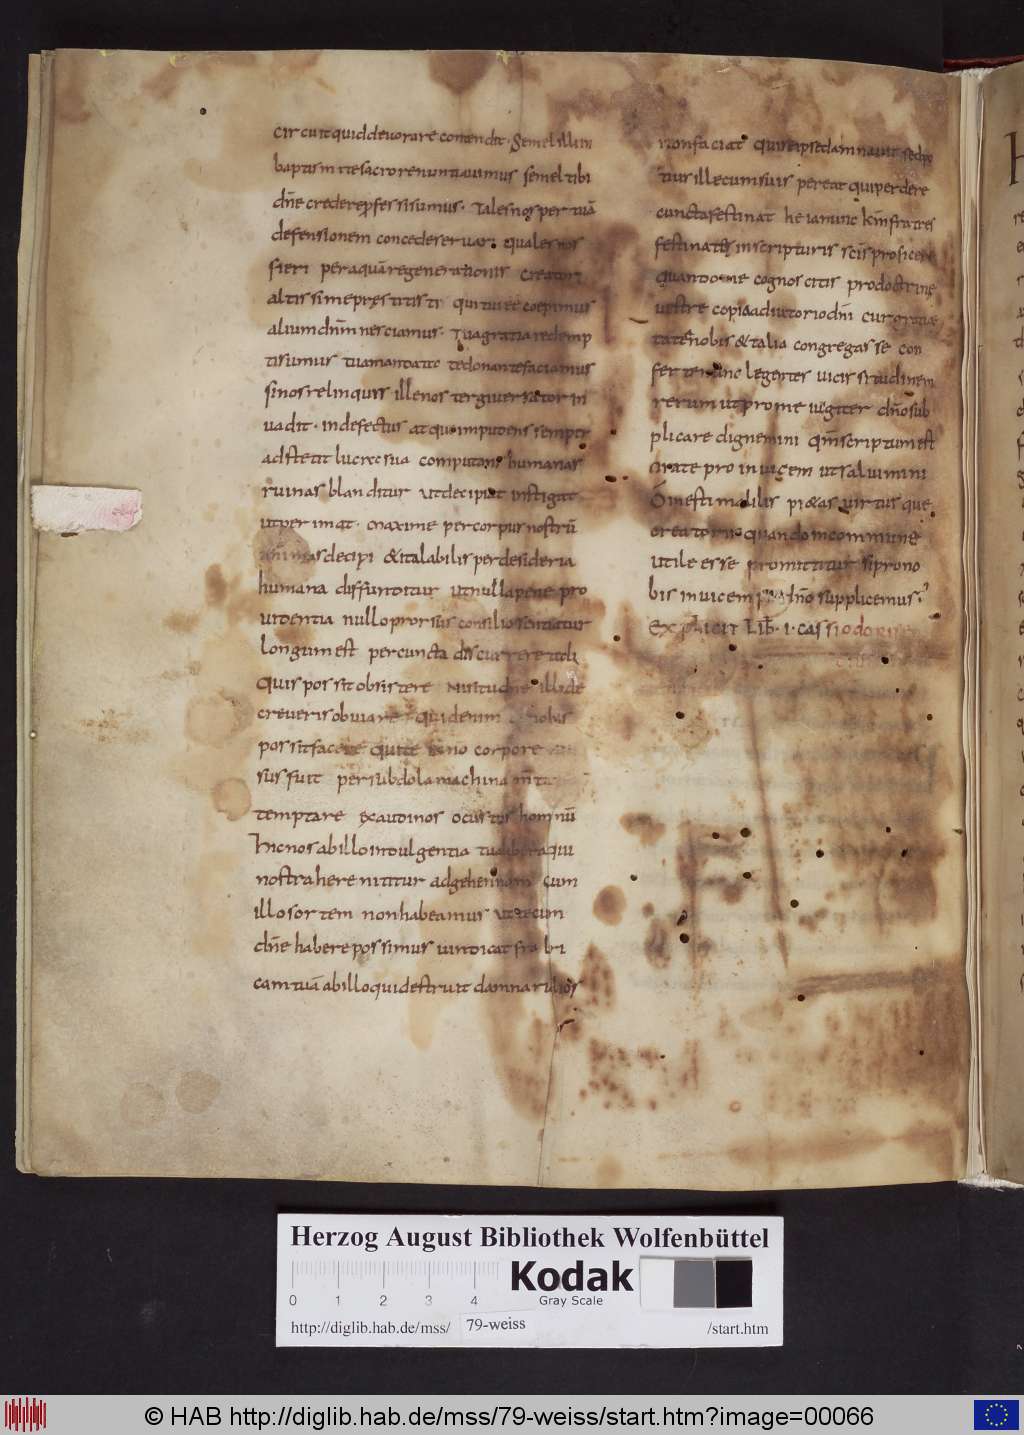 circuit quid devorare contendit. Semel illum
baptismi te sacro renuntiavimus semel tibi
dñe credere professi sumus. Tales nos per tuā
defensionem concede servari quales nos
fieri per aquā regenerationis creatori
altissime pręstitisti qui tui eē coepimus
alium dnm nesciamus. Tua gratia redemp
ti sumus tua mandata te donante faciamus
si nos relinquis ille nos tergiversator in
vadit. indefectus atqui impudens semper
adstetit lucrū sua computans humanas
ruinas blanditur ut decipiat instigat
ut perimat. maxime per corpus nostrū
animas decipi & ita labilis per desideria
humana diffunditur ut nulla pene pro
videntia nullo prorsus consilio sentiatur
longum est per cuncta discurrere
Quis possit obsistere Nisi tu dñe illi de
creveris obviare quid enim nobis
possit facere qui te in corpore
sus fuit per subdola machina
temptare exaudi nos custos hominū
Hic nos ab illo indulgentia tua libera qui
nos trahere nititur ad gehennam cum
illo sortem non habeamus ut tecum
dñe habere possimus vindicat fabri
cam tuā ab illo qui destruit damnatus hos
non faciat qui se ipse damnavit sed po
tius ille cum suis pereat qui perdere
cuncta festinat heia nunc kmi fratres
festinate in scripturis scis proficere
quando me cognoscitis pro doctrinę
vestre copia adiutorio dñi cur gratie
tatē nobis & talia congregasse con
ferte nunc legentes vicissitudinem
rerum ut pro me iugiter dño sub
plicare dignemini qm scriptum est
orate pro invicem ut salvimini
O inestimabilis pietas virtusque
creatoris quando in commune
utile esse promittitur si pro no
bis invicem pio dño supplicemus.
Explicit Lib. i. cassiodori
Herzog August Bibliothek Wolfenbüttel
Kodak
Gray Scale
0 1 2 3 4
http://diglib.hab.de/mss/ 79-weiss /start.htm
© HAB http://diglib.hab.de/mss/79-weiss/start.htm?image=00066